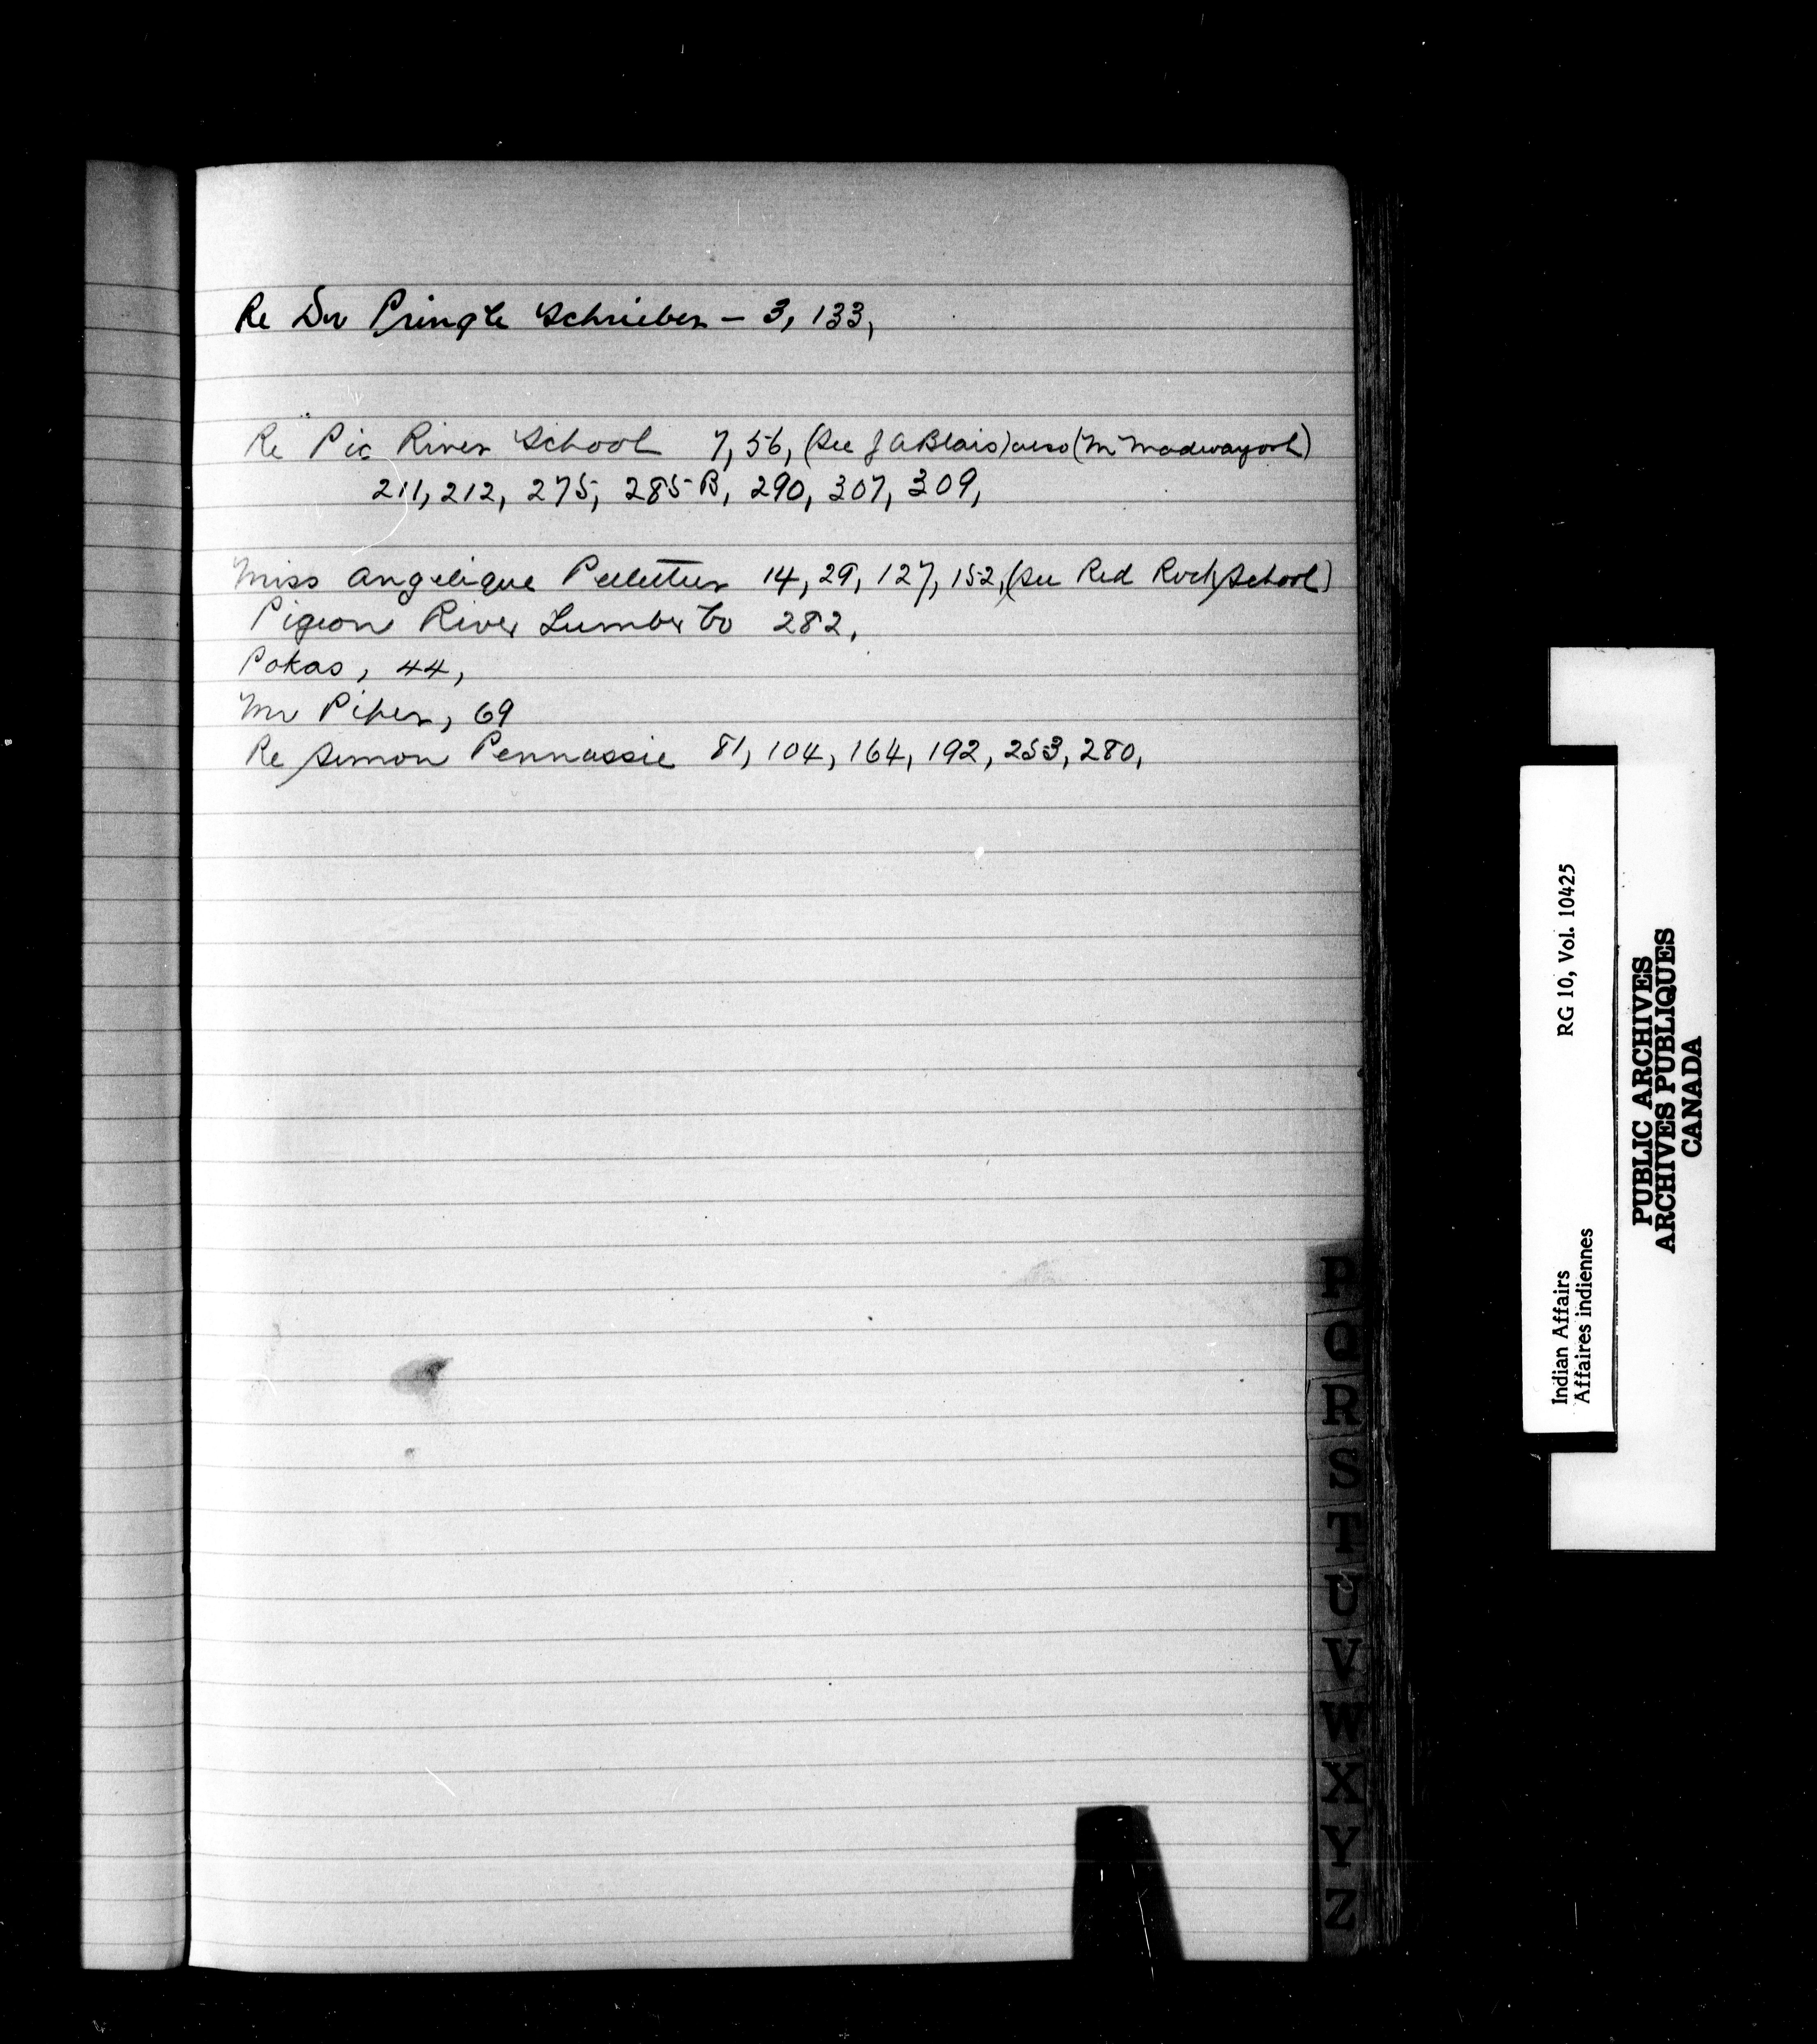 Re Dr Pringle Schrieber - 3, 133,
Re Pic River School 7, 56, (See J A Blais) also (M Madwayosh)
211, 212, 275, 285-B, 290, 307, 309,
Miss Angelique Pelletier 14, 29, 127, 152, (See Red Rock School)
Pigeon River Lumber Co 282,
Pokas, 44,
Mr Piper, 69
Re Simon Pennassie 81, 104, 164, 192, 253, 280,
P
Q
R
S
T
U
V
W
X
Y
Z
Indian Affairs RG 10, Vol. 10425
Affaires indiennes
PUBLIC ARCHIVES
ARCHIVES PUBLIQUES
CANADA